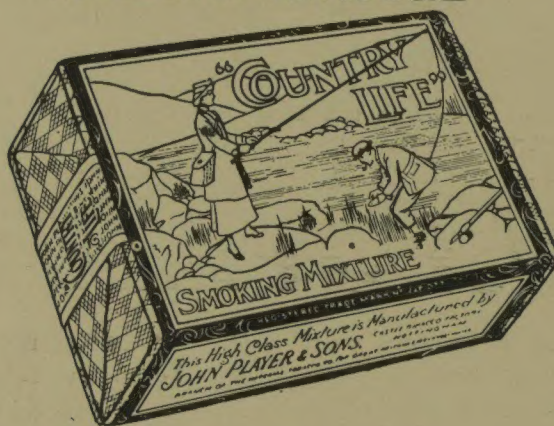 "COUNTRY
LIFE"
SMOKING MIXTURE
REGISTERED TRADE MARK
This High Class Mixture is Manufactured by
JOHN PLAYER & SONS.
CASTLE TOBACCO FACTORY
NOTTINGHAM
BRANCH OF THE IMPERIAL TOBACCO CO.